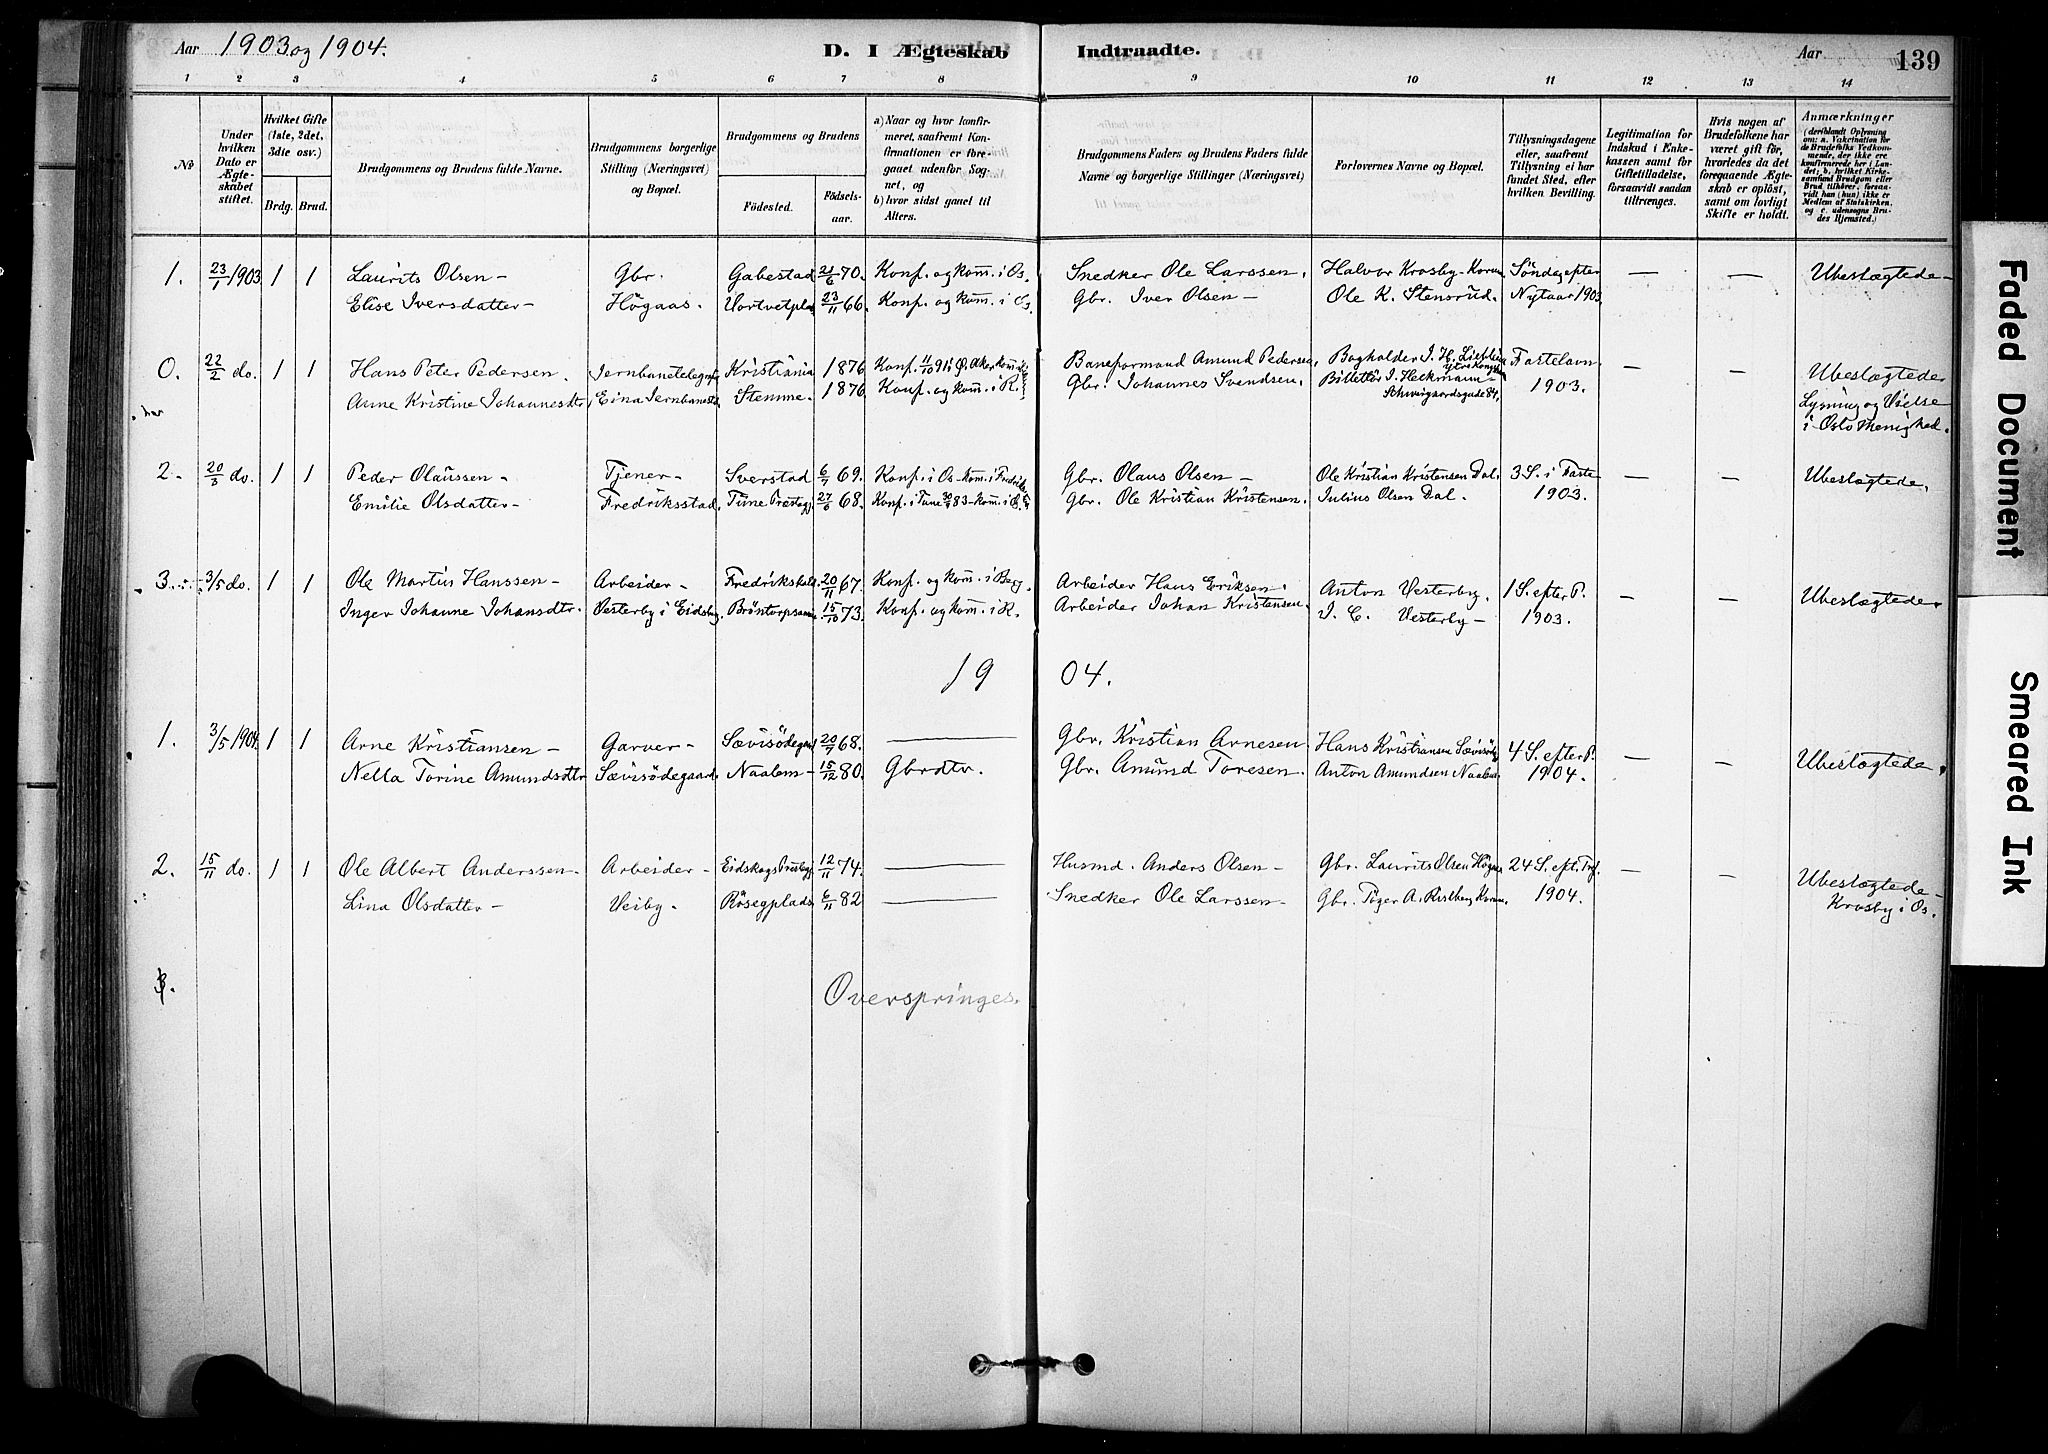 Aar 1903 og 1904. D. I Ægteskab Indtraadte. Aar 139
1 2 3 4 5 6 7 8 9 10 11 12 13 14
No
Under hvilken Dato er Ægteskabet stiftet.
Hvilket Gifte (1ste, 2det, 3die osv.)
Brdg. Brud.
Brudgommens og Brudens fulde Navne.
Brudgommens borgerlige Stilling (Næringsvei) og Bopæl.
Brudgommens og Brudens
Fødested. Fødselsaar.
a) Naar og hvor konfirmeret, saafremt Konfirmationen er foregaaet udenfor Sognet, og
b) hvor sidst gaaet til Alters.
Brudgommens Faders og Brudens Faders fulde Navne og borgerlige Stillinger (Næringsvei)
Forlovernes Navne og Bopæl.
Tillysningsdagene eller, saafremt Tillysning ei har fundet Sted, efter hvilken Bevilling.
Legitimation for Indskud i Enkekassen samt for Giftetilladelse, forsaavidt saadan tiltrænges.
Hvis nogen af Brudefolkene har været gift før, hvorledes da det foregaaende Ægteskab er opløst, samt om lovligt Skifte er holdt.
Anmærkninger
(deriblandt Oplysning om: a. Vakcination for de Brudefolks Vedkommende, der ikke ere konfirmerede her i Landet; b. hvilket Kirkesamfund Brudgom eller Brud tilhører, forsaavidt han (hun) ikke er Medlem af Statskirken, og c. udensogns Brudes Hjemsted.)
1. 23/1 1903 1 1 Laurits Olsen - Gbr. Gabestad 21/6 70. Konf. og kom. i Os. Snedker Ole Larssen. Halvor Krosby - Korum Søndag efter — — Ubeslægtede -
Elise Iversdatter - Högaas. Vortvetplds 23/11 66. Konf. og kom. i Os. Gbr. Iver Olsen - Ole K. Stensrud. Nytaar 1903.
0. 22/2 do. 1 1 Hans Peter Pedersen. Jernbanetelegrafist Kristiania 1876 Konf. 11/10 91 i Ø. Aker kom. Baneformand Amund Pedersen, Bogholder J. H. Fastelavn — — Ubeslægtede
Anne Kristine Johannesdtr, Eina Jernbanestd. Stemme - 1876 Konf. og kom. i R. Gbr. Johannes Svendsen. Billettör J. Heckmann - 1903. Lysning og Vielse
Schweigaardsgade 84, i Oslo Menighed.
2. 20/3 do. 1 1 Peder Olaussen - Tjener - Sverstad 6/7 69. Konf. i Os - kom. i Fredriksstd Gbr. Olaus Olsen - Ole Kristian Kristensen Dal. 3 S. i Faste — — Ubeslægtede.
Emilie Olsdatter - Fredriksstad. Tune Prestegj. 27/6 68. Konf. i Tune 30/9 83 - kom. i Os. Gbr. Ole Kristian Kristensen. Julius Olsen Dal. 1903.
3. 3/5 do. 1 1 Ole Martius Hanssen - Arbeider - Fredrikshald 20/11 67. Konf. og kom. i Berg. Arbeider Hans Eriksen. Anton Vesterby. 1 S. efter P. — — Ubeslægtede
Inger Johanne Johansdtr. Vesterby i Eidsbg. Bröntorpsann. 15/10 73. Konf. og kom. i R. Arbeider Johan Kristensen. J. C. Vesterby - 1903.
1904.
1. 3/5 1904. 1 1 Arne Kristiansen - Garver - Sævisödegrd 20/7 68. — Gbr. Kristian Arnesen Hans Kristiansen Sævisödg 4 S. efter P. — — Ubeslægtede.
Nella Torine Amundsdtr Sævisödegaard. Naalem - 15/12 80. Gbrdtr. Gbr. Amund Toresen. Anton Amundsen Naalem 1904.
2. 15/11 do. 1 1 Ole Albert Anderssen. Arbeider - Eidskogs Prestegj. 12/11 74. — Husmd. Anders Olsen - Gbr. Laurits Olsen Högaas 24 S. eft. Tref. — — Ubeslægtede -
Lina Olsdatter - Veiby. Rösegplads. 6/11 82 — Snedker Ole Larssen - Gbr. 1904. Krosby i Os.
Overspringes.
Faded Document
Smeared Ink